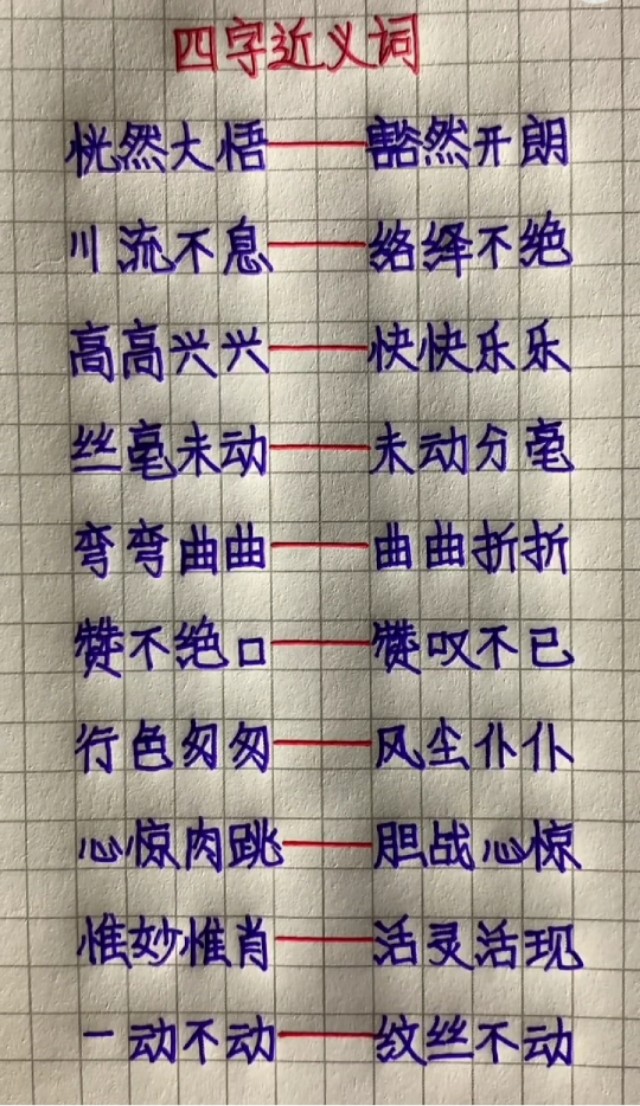 四字近义词
恍然大悟——豁然开朗
川流不息——络绎不绝
高高兴兴——快快乐乐
丝毫未动——未动分毫
弯弯曲曲——曲曲折折
赞不绝口——赞叹不已
行色匆匆——风尘仆仆
心惊肉跳——胆战心惊
惟妙惟肖——活灵活现
一动不动——纹丝不动